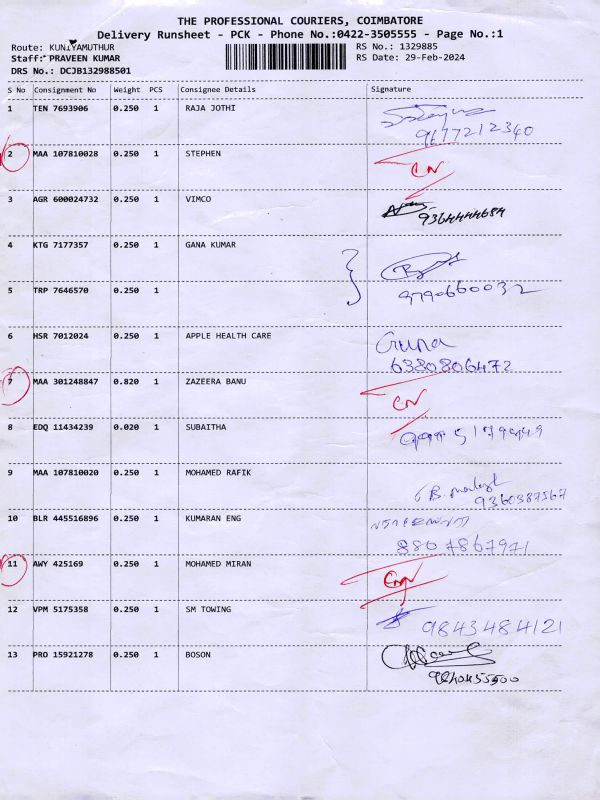 THE PROFESSIONAL COURIERS, COIMBATORE
Delivery Runsheet - PCK - Phone No.:0422-3505555 - Page No.:1
Route: KUNIYAMUTHUR RS No.: 1329885
Staff: PRAVEEN KUMAR RS Date: 29-Feb-2024
DRS No.: DCJB132988501
S No Consignment No Weight PCS Consignee Details Signature
1 TEN 7693906 0.250 1 RAJA JOTHI
9677212340
2 MAA 107810028 0.250 1 STEPHEN CN
3 AGR 600024732 0.250 1 VIMCO
9364444684
4 KTG 7177357 0.250 1 GANA KUMAR
5 TRP 7646570 0.250 1 9790660032
6 HSR 7012024 0.250 1 APPLE HEALTH CARE Guna
6380806472
7 MAA 301248847 0.820 1 ZAZEERA BANU CN
8 EDQ 11434239 0.020 1 SUBAITHA
9 MAA 107810020 0.250 1 MOHAMED RAFIK
9360387567
10 BLR 445516896 0.250 1 KUMARAN ENG
8807867971
11 AWY 425169 0.250 1 MOHAMED MIRAN
12 VPM 5175358 0.250 1 SM TOWING 9843484121
13 PRO 15921278 0.250 1 BOSON